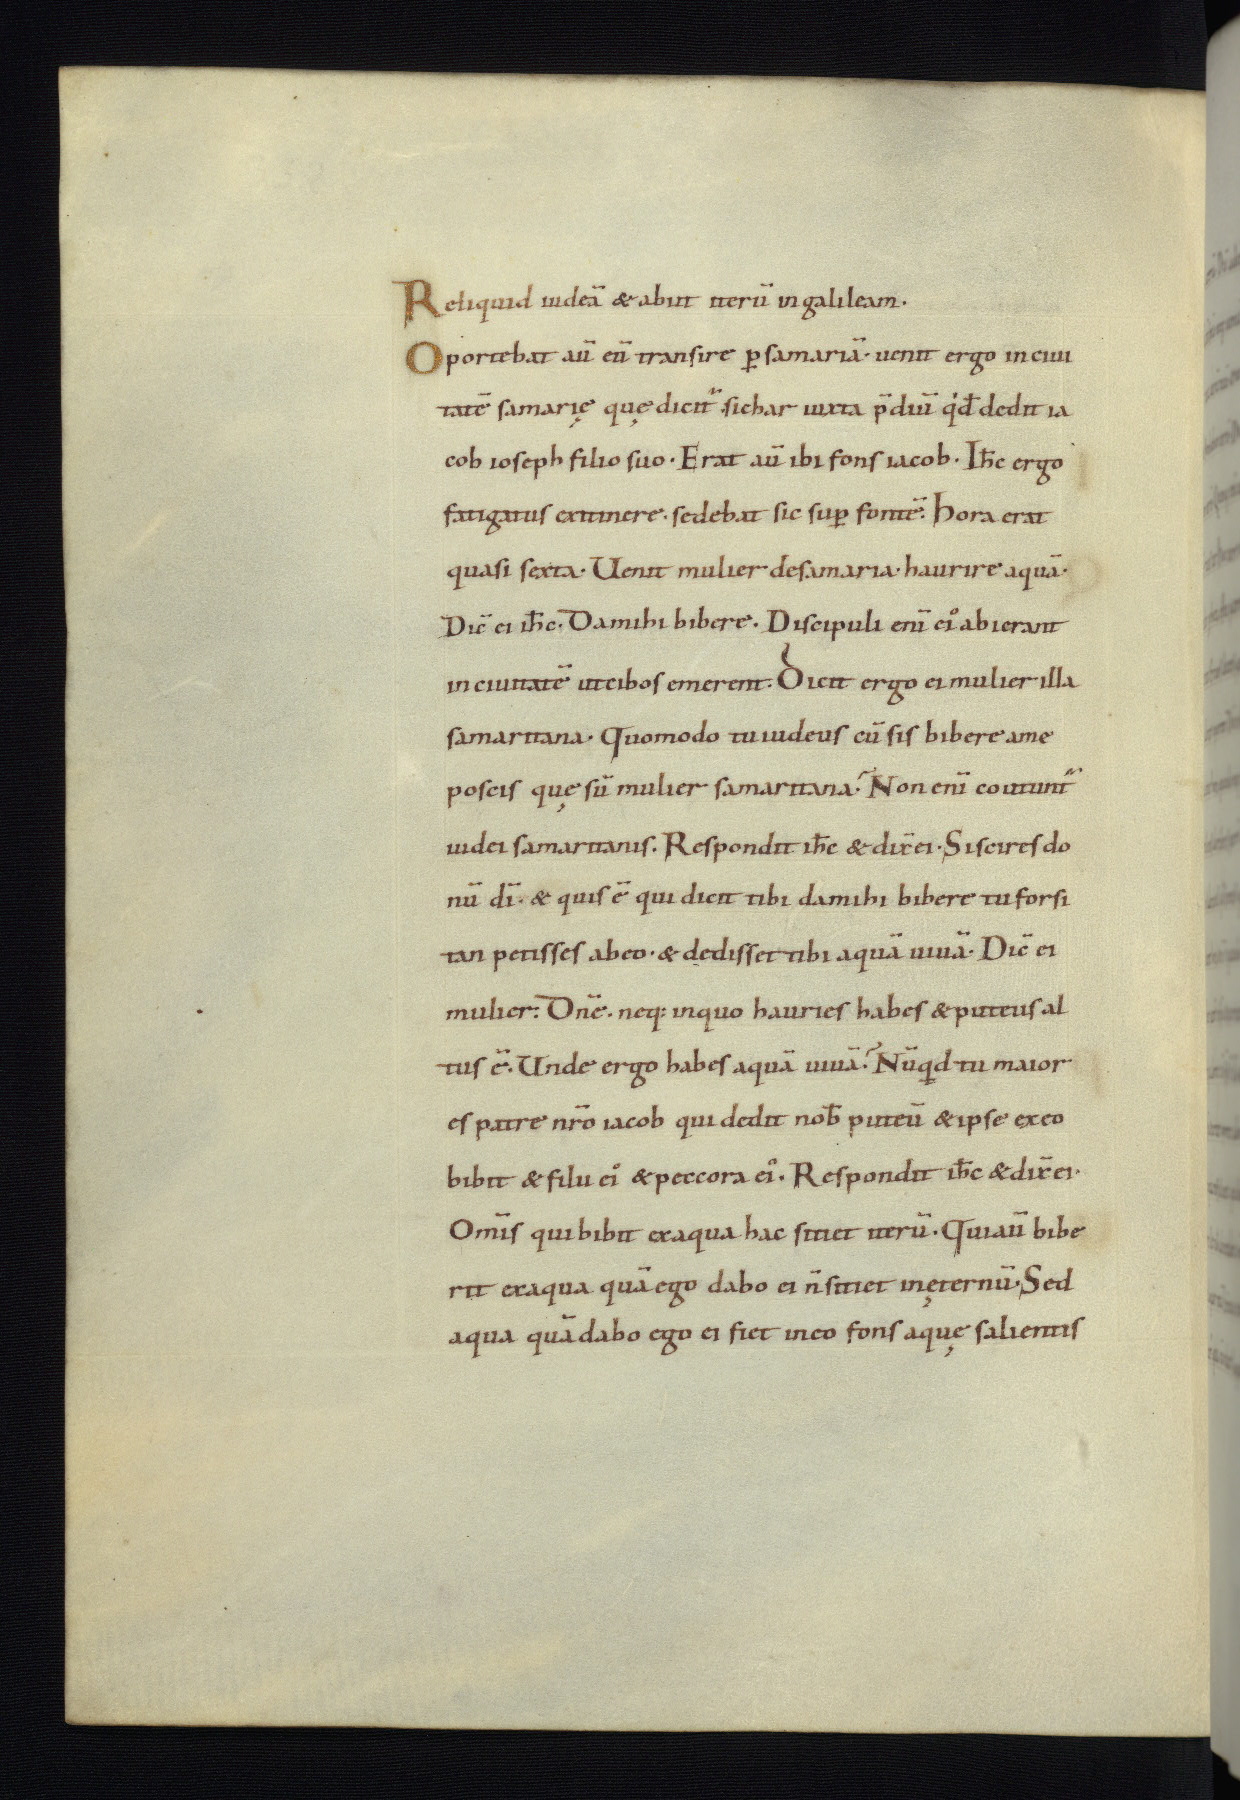 Reliquid iudeā & abiit iterū in galileam.
Oportebat aū eū transire ꝑ samariā· uenit ergo in ciui
tatē samarię quę dicit᷑ sichar iuxta p̄diū qđ dedit ia
cob ioseph filio suo · Erat aū ibi fons iacob · Ih̄c ergo
fatigatus ex itinere · sedebat sic suꝑ fontē. Hora erat
quasi sexta · Uenit mulier de samaria · haurire aquā·
Dic̄ ei ih̄c · Da mihi bibere · Discipuli enī ei᷒ abierant
in ciuitatē ut cibos emerent· Dicit ergo ei mulier illa
samaritana · Quomodo tu iudeus cū sis bibere a me
poscis quę sū mulier samaritana? Non enī coutunt᷑
iudei samaritanis. Respondit ih̄c & dix̄ ei · Si scires do
nū dī · & quis ē qui dicit tibi da mihi bibere tu forsi
tan petisses ab eo · & dedisset tibi aquā uiuā · Dic̄ ei
mulier: Dn̄e · neq; in quo hauries habes & puteus al
tus ē · Unde ergo habes aquā uiuā? Nūqd tu maior
es patre nr̄o iacob qui dedit nob̄ puteū & ipse ex eo
bibit & filii ei᷒ & peccora ei᷒ · Respondit ih̄c & dix̄ ei·
Om̄is qui bibit ex aqua hac sitiet iterū · Qui aū bibe
rit ex aqua quā ego dabo ei n̄ sitiet in ęternū· Sed
aqua quā dabo ego ei fiet in eo fons aquę salientis